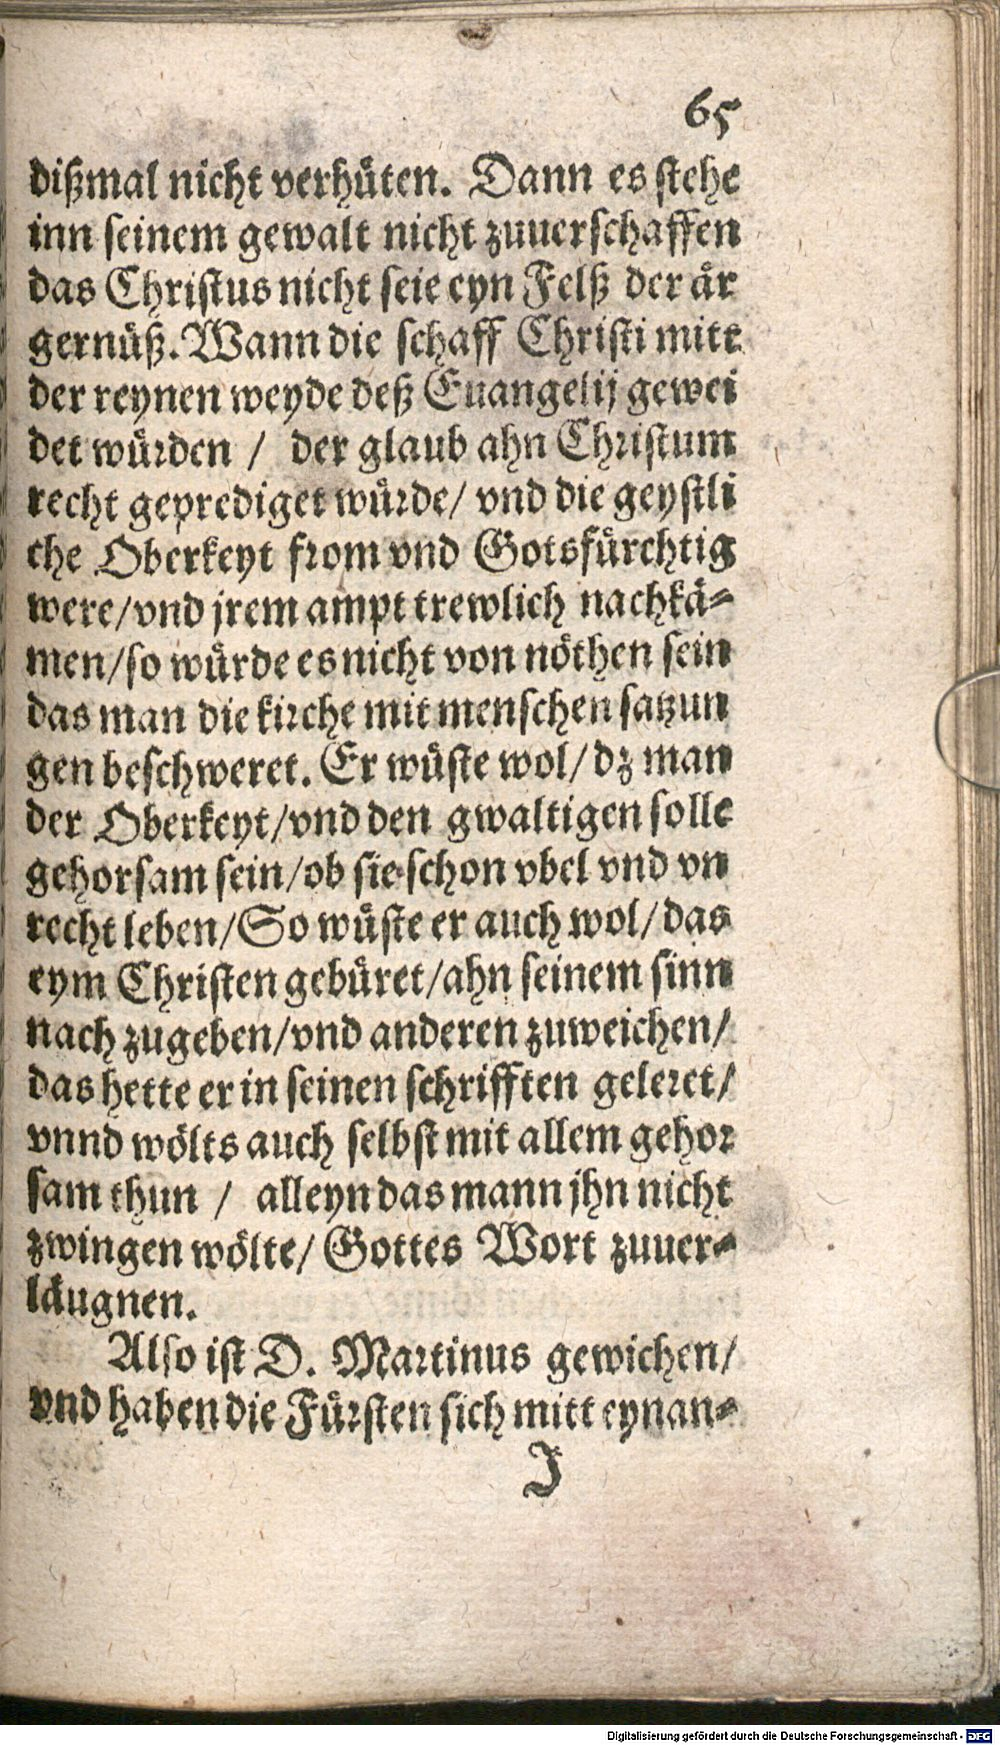 65
dißmal nicht verhüten. Dann es stehe
inn seinem gewalt nicht zuuerschaffen
das Christus nicht seie eyn Felß der är
gernüß. Wann die schaff Christi mitt
der reynen weyde deß Euangelij gewei
det würden / der glaub ahn Christum
recht geprediget würde/ vnd die geystli
che Oberkeyt from vnd Gotsfürchtig
were/vnd jrem ampt trewlich nachkä-
men/so würde es nicht von nöthen sein
das man die kirche mit menschen satzun
gen beschweret. Er wüste wol/ dz man
der Oberkeyt/vnd den gwaltigen solle
gehorsam sein/ob sie schon vbel vnd vn
recht leben/So wüste er auch wol/ das
eym Christen gebüret/ahn seinem sinn
nach zugeben/vnd anderen zuweichen/
das hette er in seinen schrifften geleret/
vnnd wölts auch selbst mit allem gehor
sam thun / alleyn das mann jhn nicht
zwingen wölte/ Gottes Wort zuuer-
läugnen.
Also ist D. Martinus gewichen/
vnd haben die Fürsten sich mitt eynan-
J
Digitalisierung gefördert durch die Deutsche Forschungsgemeinschaft - DFG